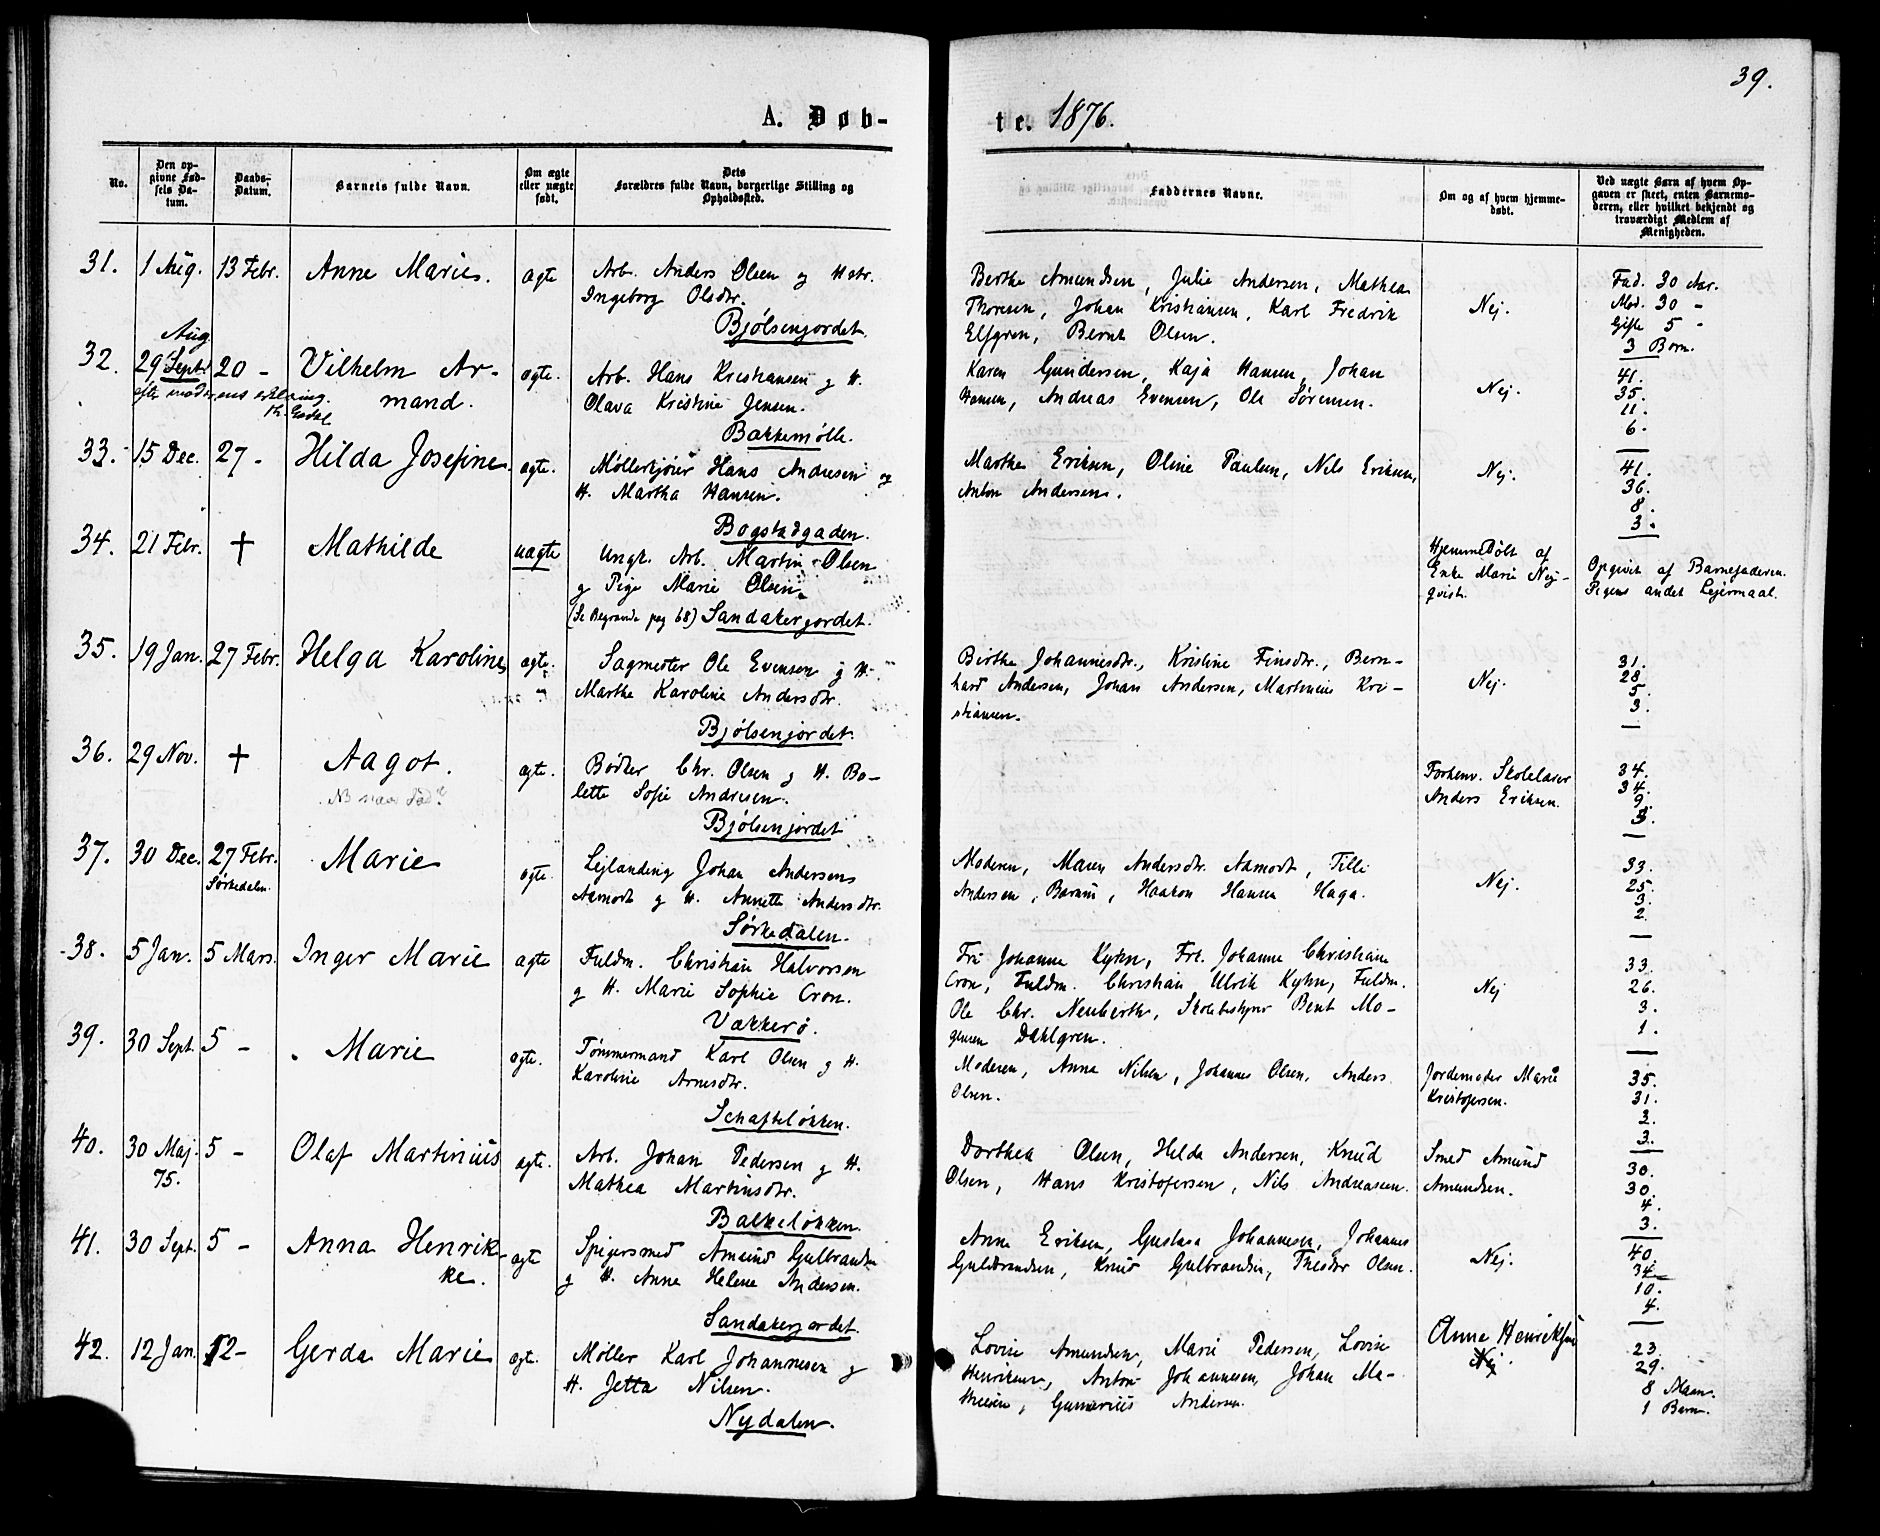 39.
A. Døb-
te. 1876.
No.
Den op-
givne Fød-
sels Da-
tum.
Daabs-
Datum.
Barnets fulde Navn.
Om ægte
eller uægte
født.
Dets
Forældres fulde Navn, borgerlige Stilling og
Opholdssted.
Faddernes Navne.
Om og af hvem hjemme-
døbt.
Ved uægte Børn af hvem Op-
gaven er skeet, enten Barnemo-
deren, eller hvilket bekjendt og
troværdigt Medlem af
Menigheden.
31. 1 Aug. 13 Febr. Anne Marie. ægte
Arb. Anders Olsen og Hstr.
Ingeborg Olsdtr.
Bjølsenjordet.
Berthe Amundsen, Julie Andersen, Mathea
Thoresen, Johan Kristiansen, Karl Fredrik
Elfgren, Bernt Olsen.
Nej.
Fad. 30 Aar.
Mod. 30 -
Gifte 5 -
3 Børn.
32. Aug.
29 Sept. 20 - Vilhelm Ar-
mand. ægte.
efter moderens erklæring.
Arb. Hans Kristiansen og H.
Olava Kristine Jensen.
Bakkemølle.
Karen Gundersen, Kaja Hansen, Johan
Hansen, Andreas Evensen, Ole Sørensen.
Nej.
41.
35.
11.
6.
33. 15 Dec. 27 - Hilda Josefine. ægte.
Møllerkjører Hans Andresen og
H. Martha Hansen.
Bogstadgaden.
Marthe Eriksen, Oline Paulsen, Nils Eriksen,
Anton Andersen.
Nej.
41.
36.
8.
3.
34. 21 Febr. † Mathilde uægte
Ungk. Arb. Martin Olsen
og Pige Marie Olsen.
(Se Begravede pag 68) Sandakerjordet.
Hjemmedøbt af
Enke Marie Nej-
qvist.
Opgivet af Barnefaderen.
Pigens andet Lejermaal.
35. 19 Jan. 27 Febr. Helga Karoline ægte.
Sagmester Ole Evensen og H.
Marthe Karoline Andersdtr.
Bjølsenjordet.
Birthe Johannesdtr., Kristine Finsdtr., Bern-
hard Andersen, Johan Andersen, Martinius Kri-
stiansen.
Nej.
31.
28.
5.
3.
36. 29 Nov. † Aagot. ægte.
NB naar død?
Bødker Chr. Olsen og H. Bo-
lette Sofie Andresen.
Bjølsenjordet
Forhenv. Skolelærer
Anders Eriksen.
34.
34.
9.
3.
37. 30 Dec. 27 Febr.
Sørkedalen. Marie ægte.
Lejlending Johan Andersens
Aamodt og H. Annette Andersdtr.
Sørkedalen.
Moderen, Maren Andersdtr. Aamodt, Tilli
Andersen, Barnu, Haakon Hansen Haga.
Nej.
33.
25.
3.
2.
38. 5 Jan. 5 Mars. Inger Marie ægte
Fuldm. Christian Halvorsen
og H. Marie Sophie Cron.
Vækkerø.
Fru Johanne Kyhn, Frk. Johanne Christiane
Cron, Fuldm. Christian Ulrik Kyhn, Fuldm.
Ole Chr. Neuberth, Skolebestyrer Bent Mo-
gensen Dahlgren.
Nej
33.
26.
3.
1.
39. 30 Sept. 5 - Marie ægte.
Tømmermand Karl Olsen og H.
Karoline Arnesdtr.
Schafteløkken.
Moderen, Anna Nilsen, Johannes Olsen, Anders
Olsen.
Jordemoder Marie
Kristofersen.
35.
31.
2.
3.
40. 30 Maj.
75. 5 - Olaf Martinius ægte.
Arb. Johan Pedersen og H.
Mathea Martinsdtr.
Balkeløkken.
Dorthea Olsen, Helda Andersen, Knud
Olsen, Hans Kristofersen, Nils Andreassen.
Smed Amund
Amundsen.
30.
30.
4.
3.
41. 30 Sept. 5 - Anna Henrik-
ke. ægte
Spigersmed Amund Gulbrandsen
og H. Anne Helene Andersen.
Sandakerjordet.
Anne Eriksen, Gustava Johannesen, Johannes
Guldbrandsen, Knud Gulbrandsen, Theodor Olsen.
Nej.
40.
34.
10.
4.
42. 12 Jan. 12 - Gerda Marie ægte.
Møller Karl Johannesen og
H. Jetta Nilsen.
Nydalen.
Lovise Amundsen, Marie Pedersen, Lovise
Henriksen, Anton Johannesen, Johan Ma-
thiesen, Gunerius Andersen.
Anne Henriksen
Nej.
23.
29.
8 Maan.
1 Barn.